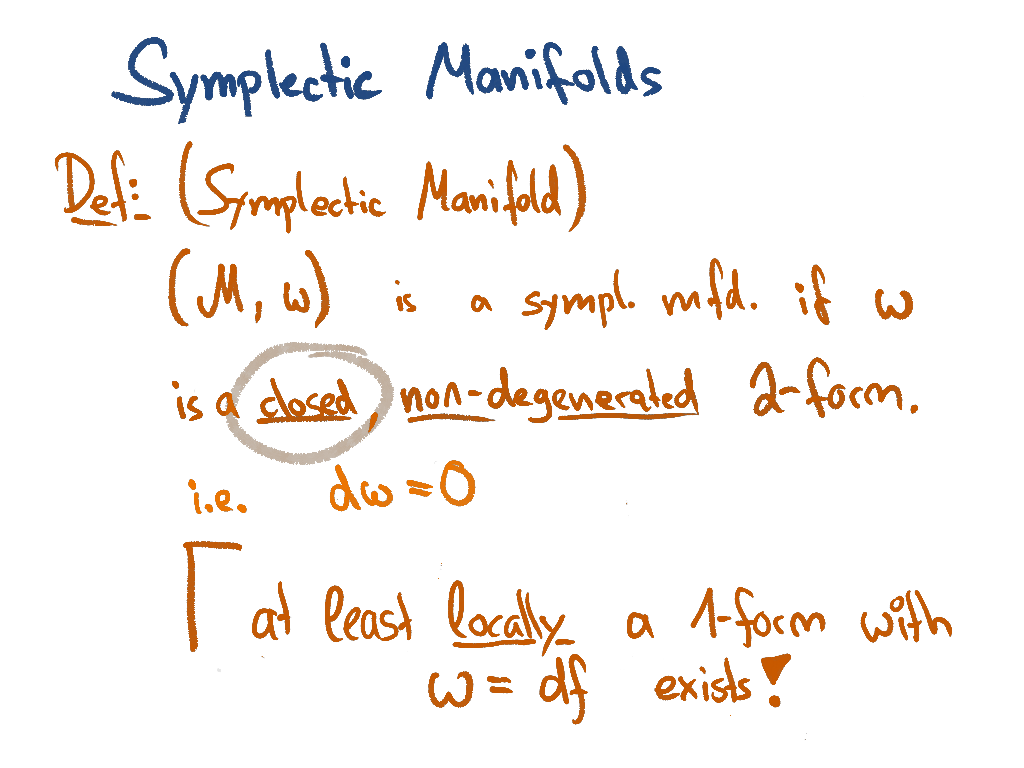 Symplectic Manifolds
Def: (Symplectic Manifold)
(M, ω) is a sympl. mfd. if ω
is a closed, non-degenerated 2-form.
i.e. dω = 0
at least locally a 1-form with
ω = df exists!